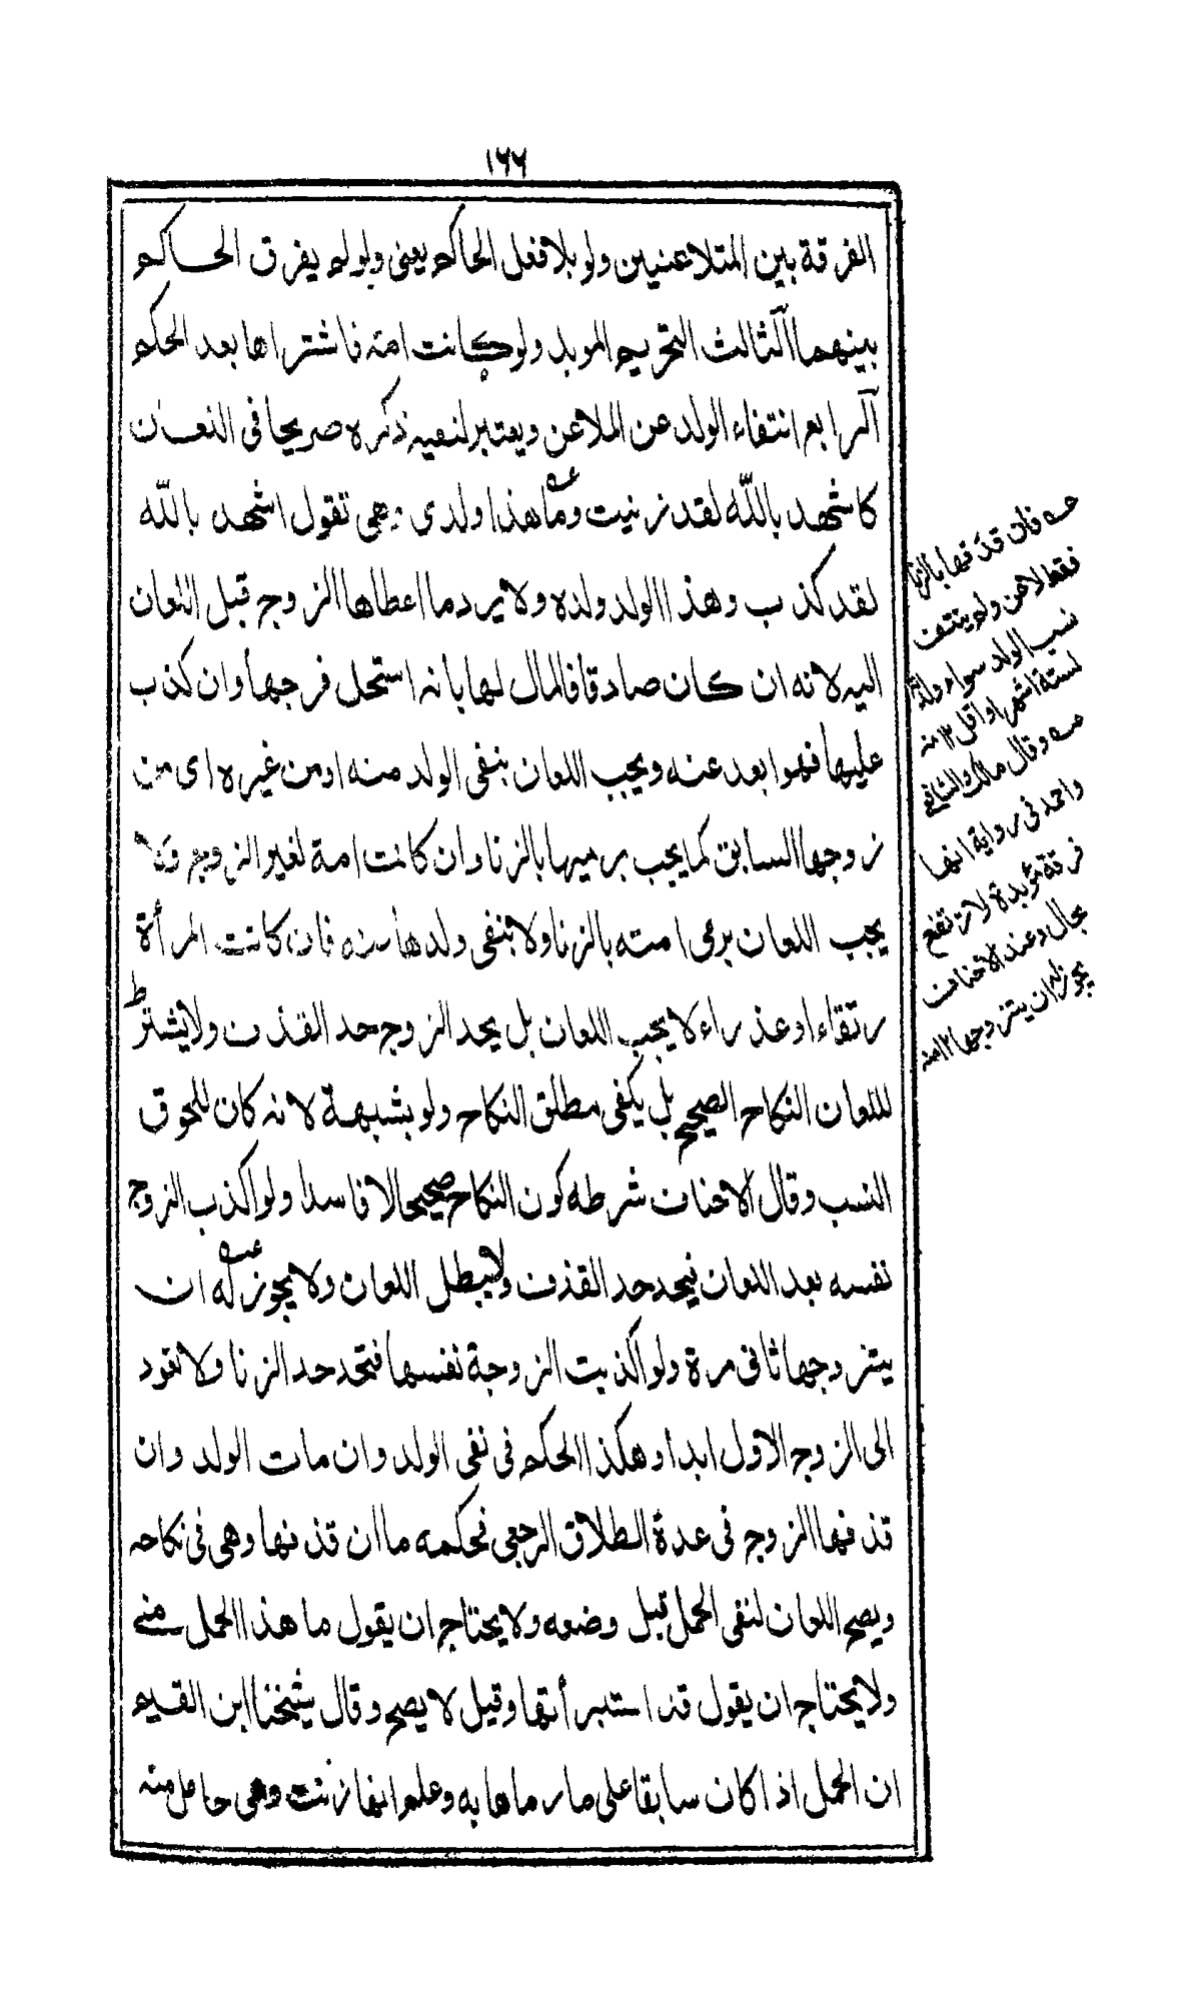 ١٦٦
الفرقة بين المتلاعنين ولو بلا فعل الحاكم يعني ولو لم يفرق الحاكم
بينهما الثالث التحريم الموبد ولو كانت امة فاشتراها بعد الحكم
الرابع انتفاء الولد عن الملاعن ويعتبر لنفيه ذكره صريحا فى اللعان
كاشهد بالله لقد زنيت وما هذا ولدى وهى تقول اشهد بالله
لقد كذب وهذا الولد ولده ولا يرد ما اعطاها الزوج قبل اللعان
اليه لانه ان كان صادقا فالمال لها بانه استحل فرجها وان كذب
عليها فهو ابعد عنه ويجب اللعان بنفى الولد منه او من غيره اى من
زوجها السابق كما يجب برميها بالزنا وان كانت امة لغير الزوج فلا
يجب اللعان برمى امته بالزنا ولا بنفى ولدها منه فان كانت المرأة
رتقاء او عذراء لا يجب اللعان بل يحد الزوج حد القذف ولا يشترط
للعان النكاح الصحيح بل يكفى مطلق النكاح ولو بشبهة لانه كان للحوق
النسب وقال الاحناف شرطه كون النكاح صحيحا لا فاسدا ولو اكذب الزوج
نفسه بعد اللعان فيحد حد القذف ولا يبطل اللعان ولا يجوز له ان
يتزوجها ثانى مرة ولو اكذبت الزوجة نفسها فتحد حد الزنا ولا تعود
الى الزوج الاول ابدا وهكذا الحكم فى نفى الولد وان مات الولد وان
قذفها الزوج فى عدة الطلاق الرجعى فحكمه ما ان قذفها وهى فى نكاحه
ويصح اللعان لنفى الحمل قبل وضعه ولا يحتاج ان يقول ما هذا الحمل منى
ولا يحتاج ان يقول قد استبرأتها وقيل لا يصح وقال شيخنا ابن القيم
ان الحمل اذا كان سابقا على ما رماها به وعلم انها زنت وهى حامل منه
عه فان قذفها بالزنا
فقط لاعن ولم ينتف
نسب الولد سواء ولدته
لستة اشهر او اقل ١٢ منه
عه وقال مالك والشافعى
واحمد فى رواية انها
فرقة مؤبدة لا ترتفع
بحال وعند الاحناف
يجوز له ان يتزوجها ١٢ منه